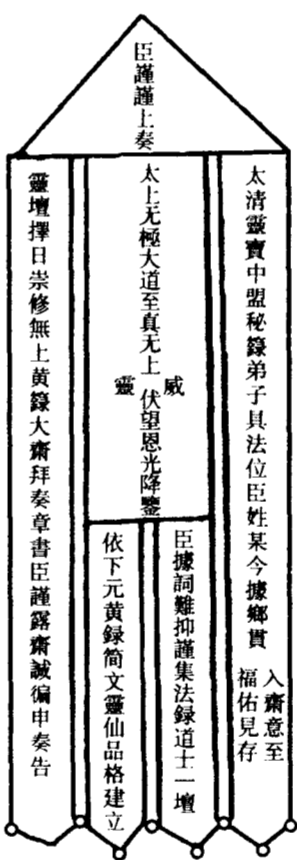 臣謹謹上奏
太清靈寶中盟秘籙弟子具法位臣姓某今據鄉貫
入齋意至
福佑見存
太上无極大道至真无上
威
靈
伏望恩光降鑒
臣據詞難抑謹集法録道士一壇
依下元黄録简文靈仙品格建立
靈壇擇日崇修無上黄籙大齋拜奏章書臣謹露齋誠徧申奏告